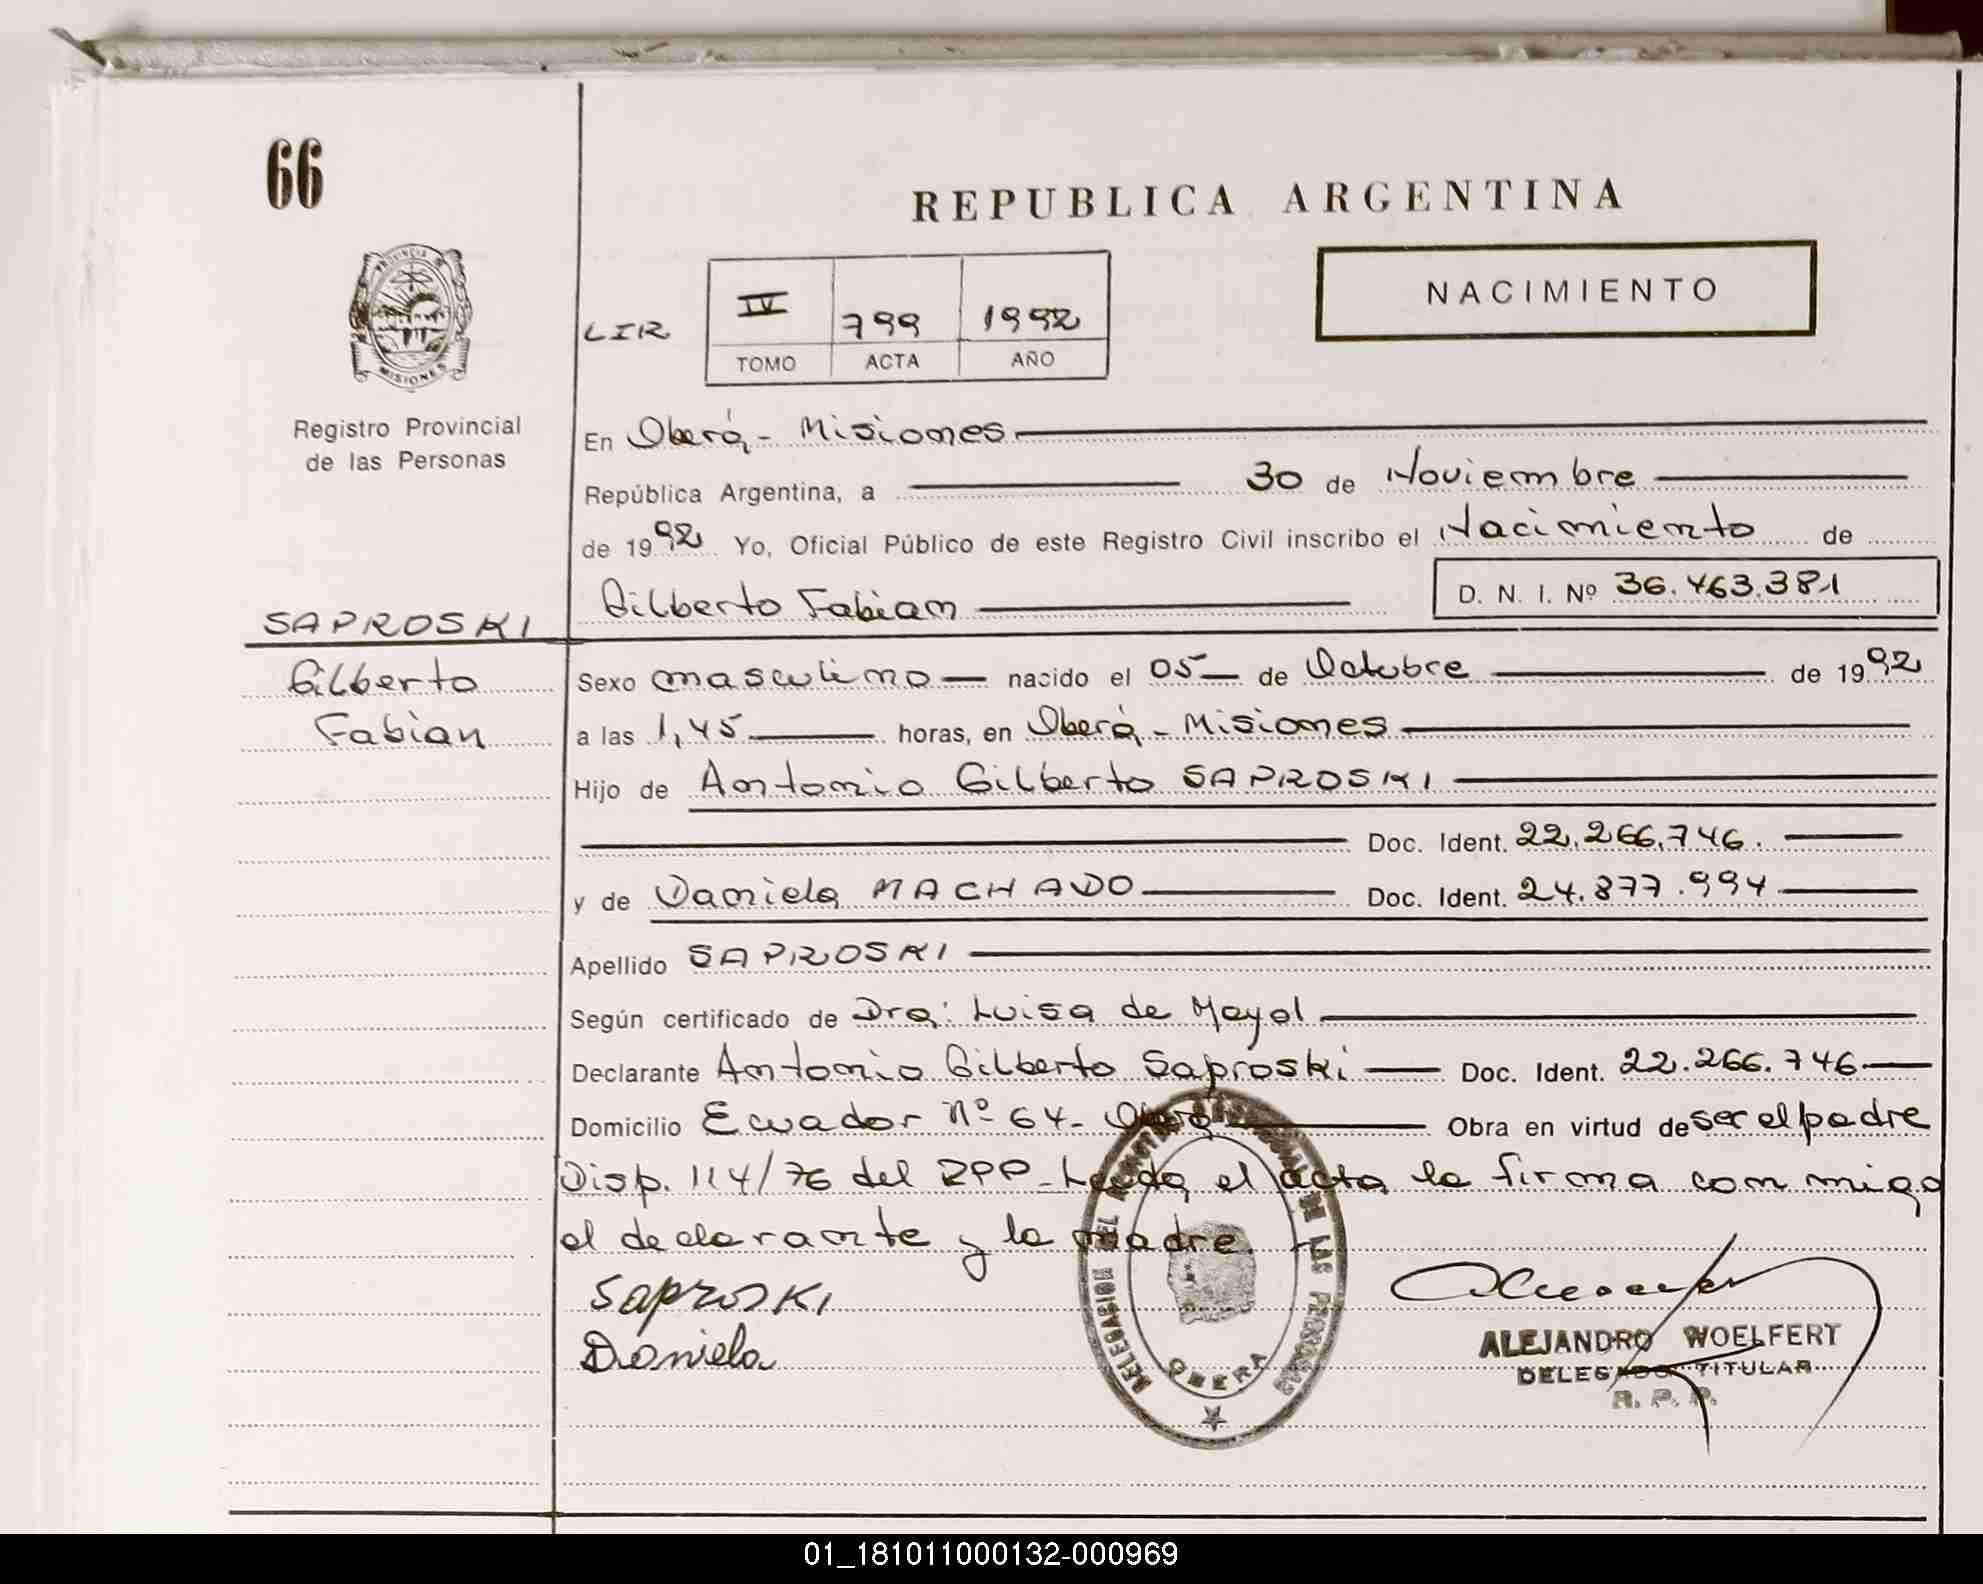 66
REPUBLICA ARGENTINA
NACIMIENTO
PROVINCIA DE
MISIONES
LIR
IV 799 1992
TOMO ACTA AÑO
Registro Provincial
de las Personas
En Oberá - Misiones
República Argentina, a 30 de Noviembre
de 1992 Yo, Oficial Público de este Registro Civil inscribo el Nacimiento de
Gilberto Fabian D. N. I. Nº 36.463.381
SAPROSKI
Gilberto
Fabian
Sexo masculino nacido el 05 de Octubre de 1992
a las 1,45 horas, en Oberá - Misiones
Hijo de Antonio Gilberto SAPROSKI
Doc. Ident. 22.266.746.
y de Daniela MACHADO Doc. Ident. 24.877.994
Apellido SAPROSKI
Según certificado de Dra: Luisa de Mayol
Declarante Antonio Gilberto Saproski Doc. Ident. 22.266.746
Domicilio Ecuador Nº 64 - Oberá Obra en virtud de ser el padre
Disp. 114/76 del RPP - Leeda el acta la firma con migo
el declarante y la madre.
Saproski
Daniela
DE LAS PERSONAS
OBERA
ALEJANDRO WOELFERT
DELEGADO TITULAR
R. P. P.
01_181011000132-000969